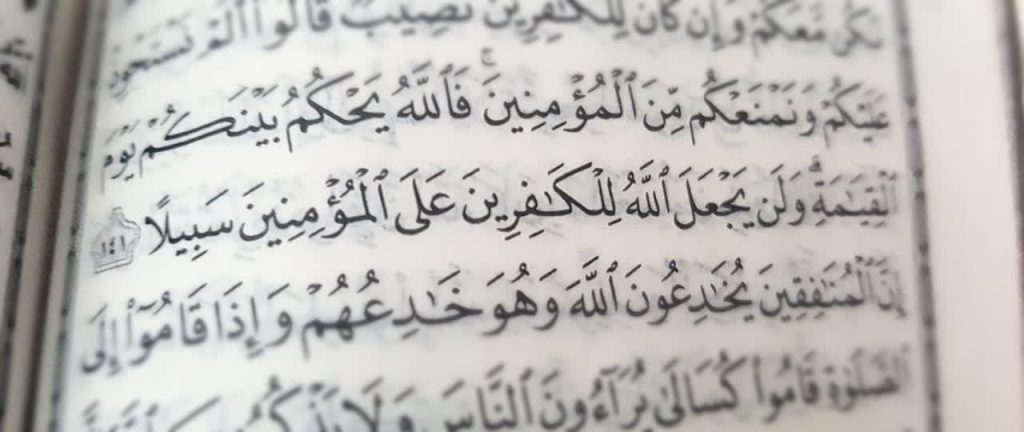 نَكُن مَّعَكُمْ وَإِن كَانَ لِلْكَٰفِرِينَ نَصِيبٌ قَالُوٓا۟ أَلَمْ نَسْتَحْوِذْ
عَلَيْكُمْ وَنَمْنَعْكُم مِّنَ ٱلْمُؤْمِنِينَ ۚ فَٱللَّهُ يَحْكُمُ بَيْنَكُمْ يَوْمَ
ٱلْقِيَٰمَةِ ۗ وَلَن يَجْعَلَ ٱللَّهُ لِلْكَٰفِرِينَ عَلَى ٱلْمُؤْمِنِينَ سَبِيلًا ١٤١
إِنَّ ٱلْمُنَٰفِقِينَ يُخَٰدِعُونَ ٱللَّهَ وَهُوَ خَٰدِعُهُمْ وَإِذَا قَامُوٓا۟ إِلَى
ٱلصَّلَوٰةِ قَامُوا۟ كُسَالَىٰ يُرَآءُونَ ٱلنَّاسَ وَلَا يَذْكُرُونَ